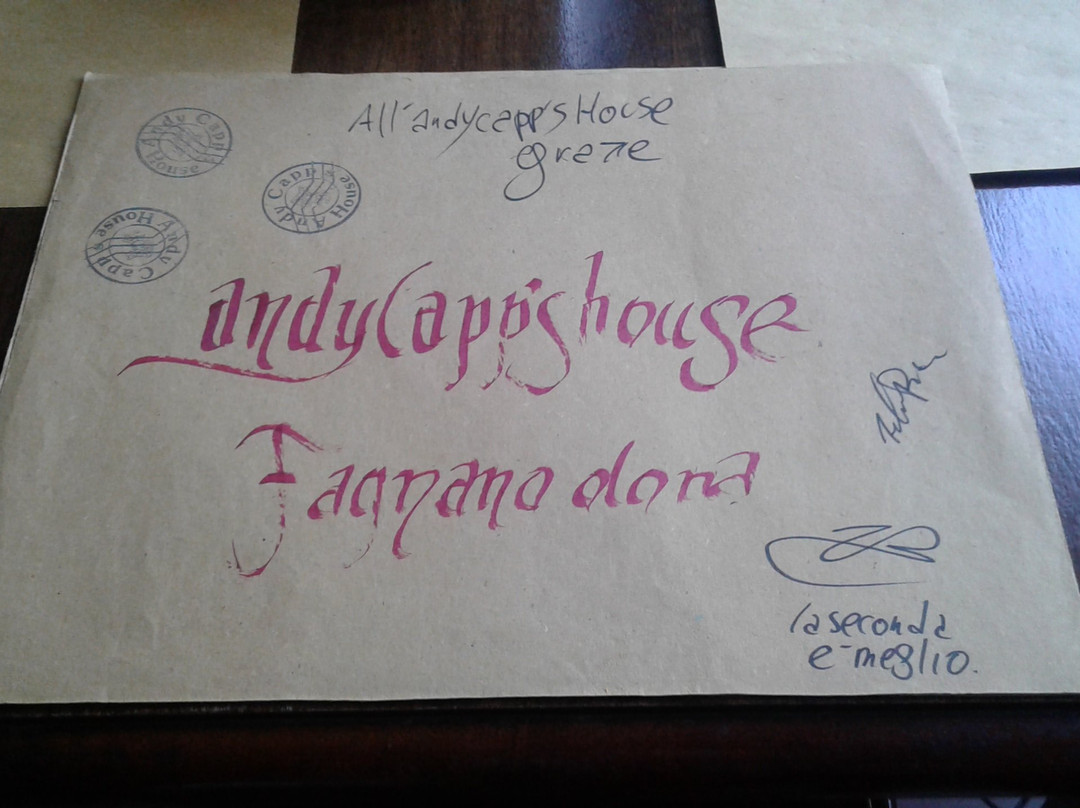 All'andycapp's House
Andy Capp's House
Andy Capp's House
Andy Capp's House
andyCapp's house
Fagnano dona
la seconda
e' meglio.